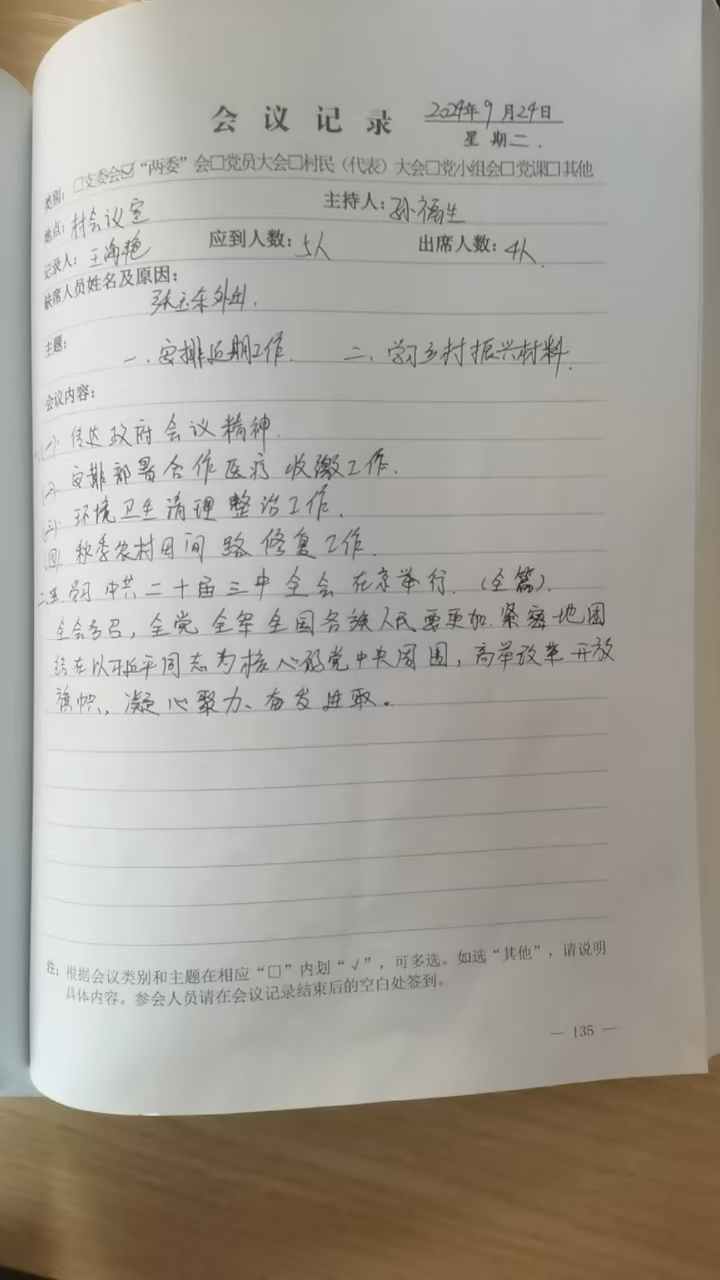 会议记录 2024年9月24日
星期二.
类别：□支委会☑“两委”会□党员大会□村民（代表）大会□党小组会□党课□其他
地点：村会议室 主持人：孙福生
记录人：王海艳 应到人数：5人 出席人数：4人.
缺席人员姓名及原因：
张玉东外出.
主题：
一.安排近期工作. 二.学习乡村振兴材料.
会议内容：
一、(一).传达政府会议精神.
(二).安排部署合作医疗收缴工作.
(三).环境卫生清理整治工作.
(四).秋季农村田间路修复工作.
二、学习中共二十届三中全会在京举行.（全篇）.
全会号召，全党全军全国各族人民要更加紧密地团
结在以习近平同志为核心的党中央周围，高举改革开放
旗帜，凝心聚力、奋发进取。
注：根据会议类别和主题在相应“□”内划“√”，可多选。如选“其他”，请说明
具体内容。参会人员请在会议记录结束后的空白处签到。
— 135 —